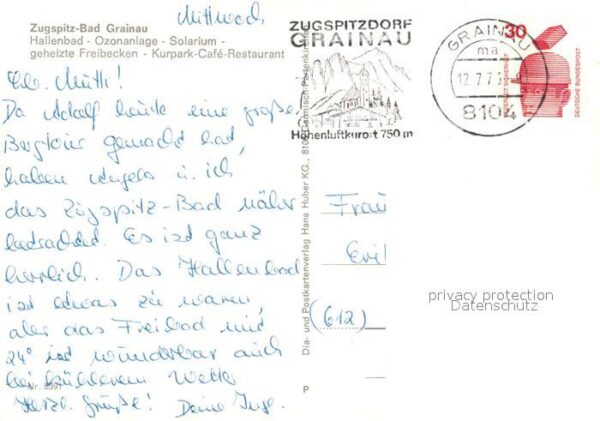 Mittwoch
Zugspitz-Bad Grainau
Hallenbad - Ozonanlage - Solarium -
geheizte Freibecken - Kurpark-Café-Restaurant
Lb. Mutti!
Da Adolf heute eine große
Bergtour gemacht hat,
haben Angela u. ich
das Zugspitz-Bad näher
betrachtet. Es ist ganz
herrlich. Das Hallenbad
ist etwas zu warm,
aber das Freibad mit
24° ist wunderbar auch
bei kühlerem Wetter
Nr. 8391
Herzl. Grüße! Deine Inge.
ZUGSPITZDORF
GRAINAU
Höhenluftkurort 750 m
GRAINAU
ma
12.7.7
8104
30
DEUTSCHE BUNDESPOST
Dia- und Postkartenverlag Hans Huber KG., 8100 Garmisch-Partenkirchen
P
Frau
(612)
privacy protection
Datenschutz